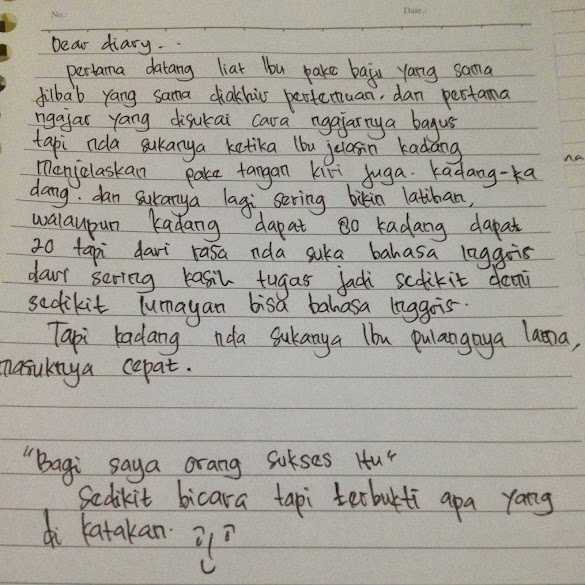 No.:
Date.:
Dear diary. . .
pertama datang liat Ibu pake baju yang sama
jilbab yang sama diakhir pertemuan. dan pertama
ngajar yang disukai cara ngajarnya bagus
tapi nda sukanya ketika Ibu jelasin kadang
menjelaskan pake tangan kiri juga. kadang-ka
dang. dan sukanya lagi sering bikin latihan,
walaupun kadang dapat 80 kadang dapat
20 tapi dari rasa nda suka bahasa Inggris
dari sering kasih tugas jadi sedikit demi
sedikit lumayan bisa bahasa Inggris.
Tapi kadang nda sukanya Ibu pulangnya lama,
masuknya cepat.
"Bagi saya orang sukses itu"
Sedikit bicara tapi terbukti apa yang
di katakan.